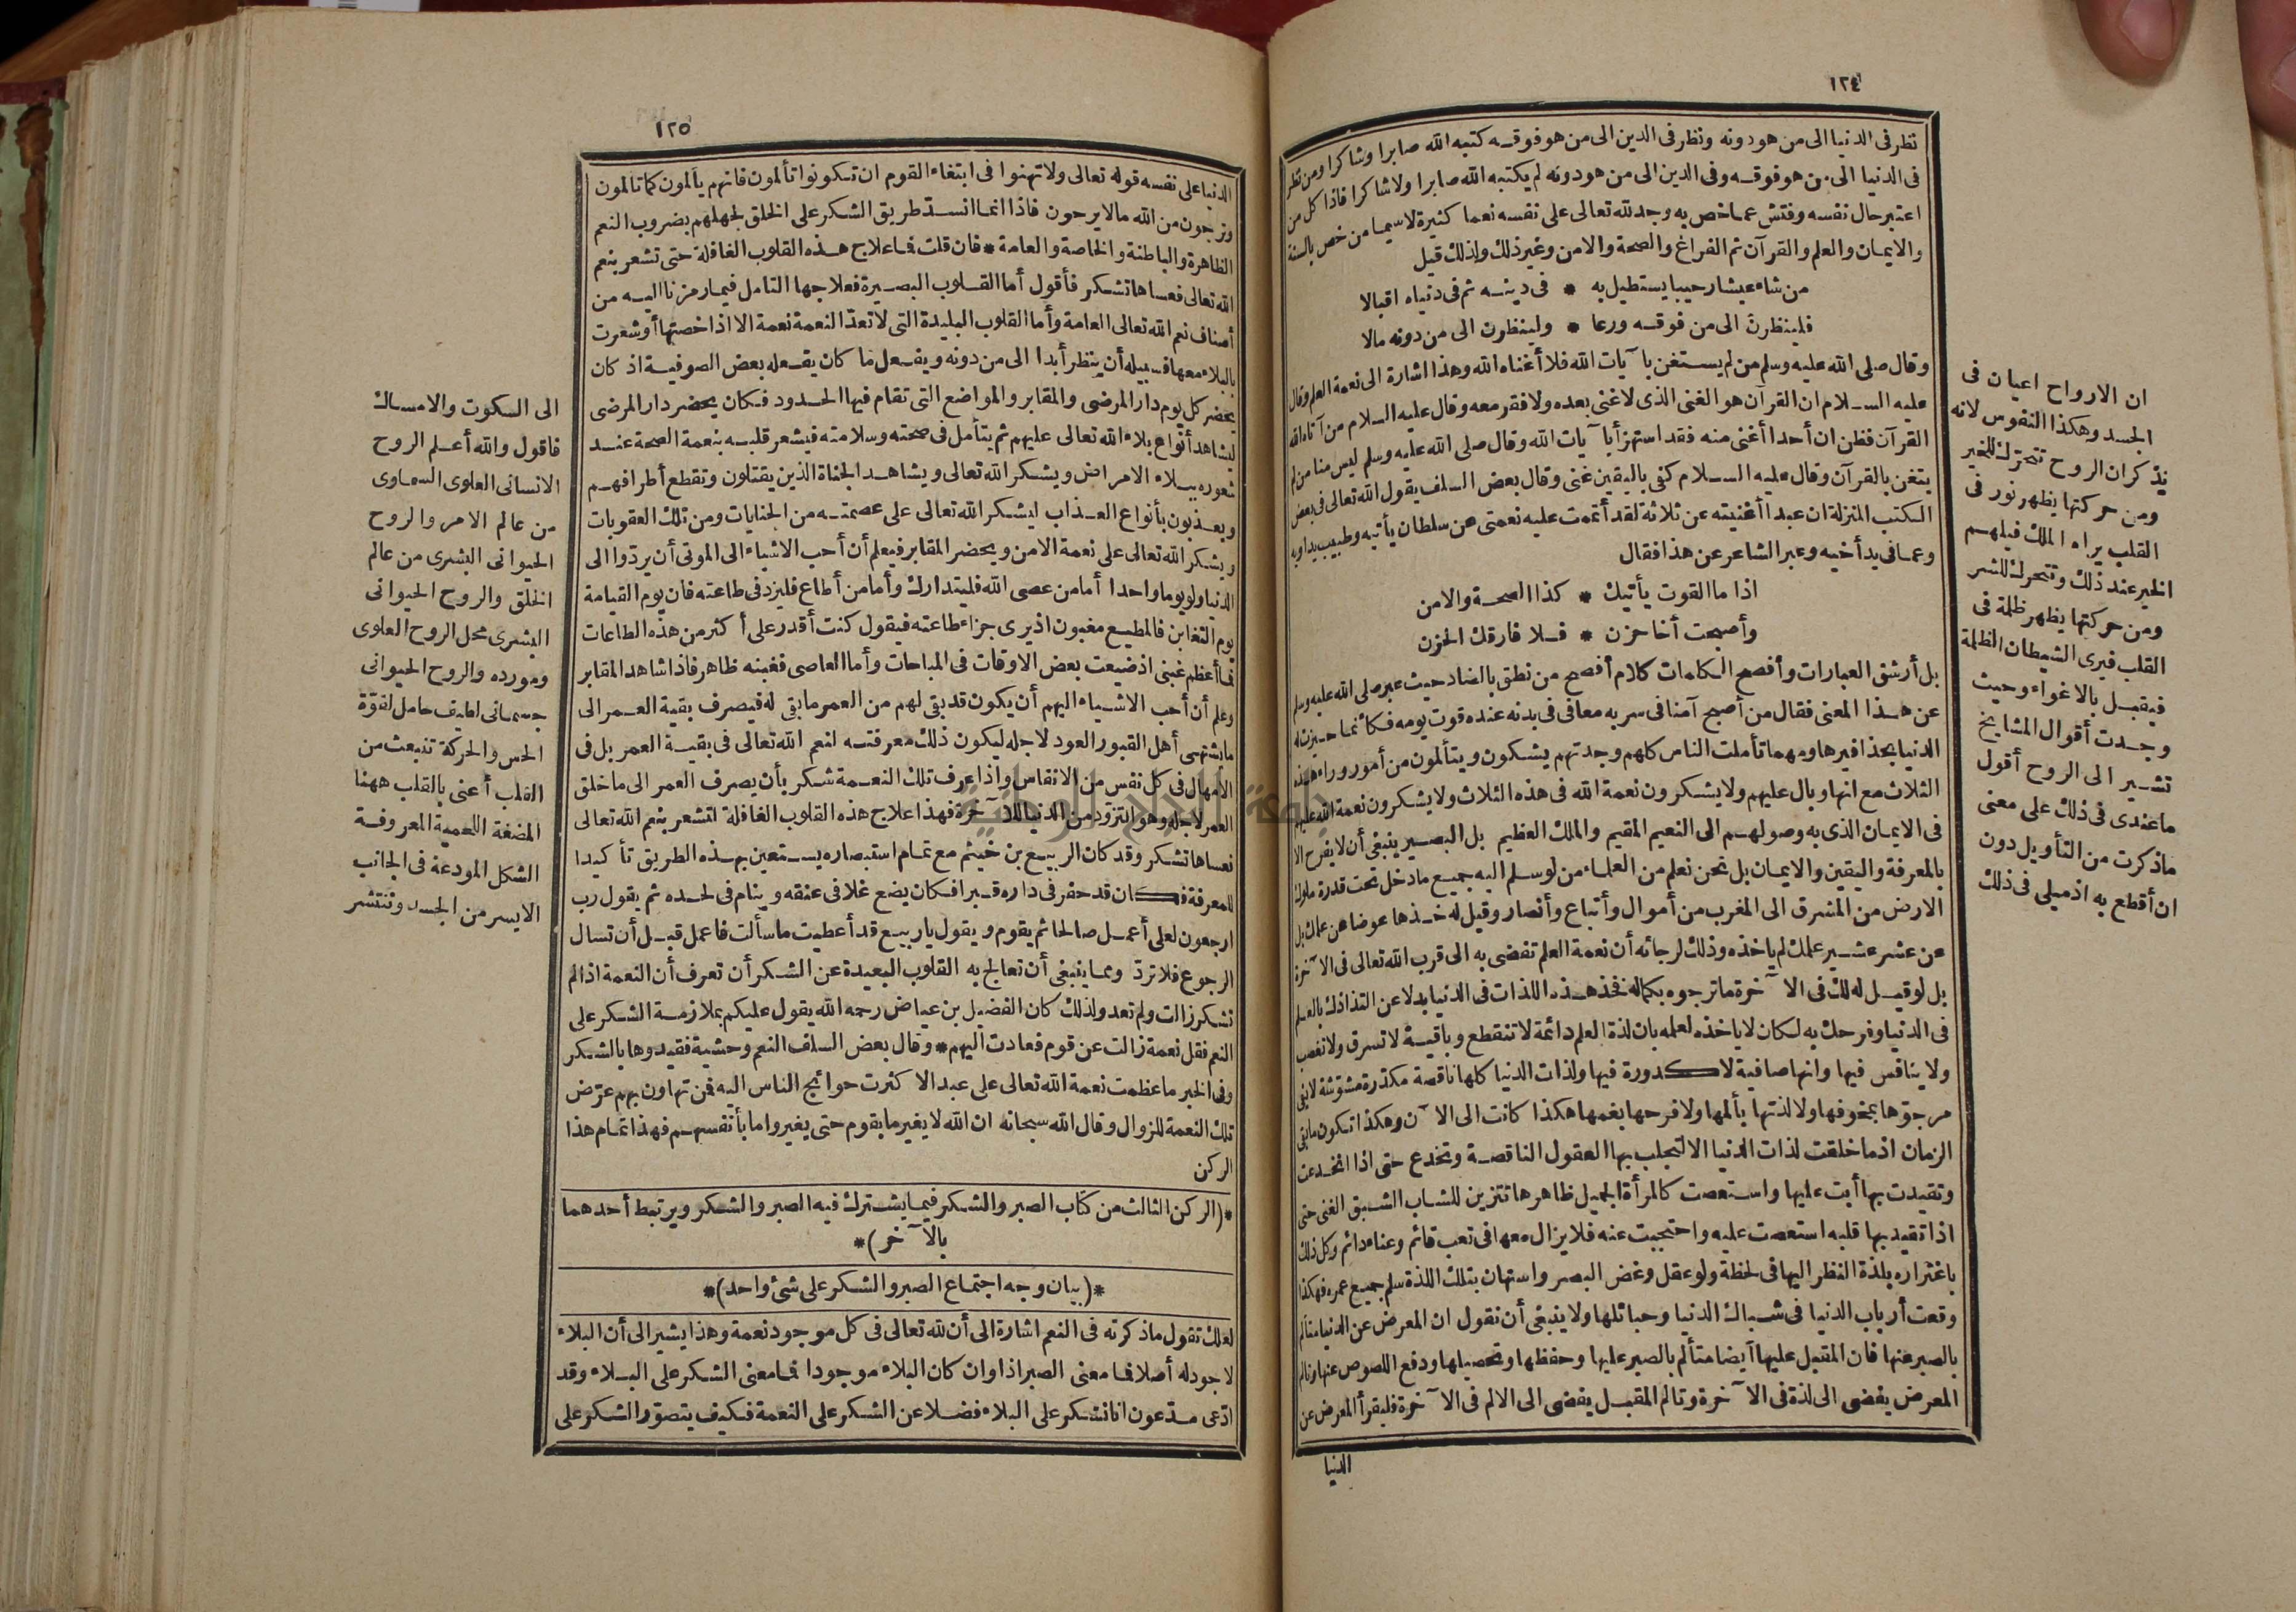 ١٢٤
نظر فى الدنيا الى من هو دونه ونظر فى الدين الى من هو فوقه كتبه الله صابرا وشاكرا ومن نظر
فى الدنيا الى من هو فوقه وفى الدين الى من هو دونه لم يكتبه الله صابرا ولا شاكرا فاذا كل من
اعتبر حال نفسه وفتش عما خص به وجد لله تعالى على نفسه نعما كثيرة لا سيما من خص بالسنة
والايمان والعلم والقرآن ثم الفراغ والصحة والامن وغير ذلك ولذلك قيل
من شاء عيشا رحيبا يستطيل به * فى دينه ثم فى دنياه اقبالا
فلينظرن الى من فوقه ورعا * ولينظرن الى من دونه مالا
وقال صلى الله عليه وسلم من لم يستغن بآيات الله فلا أغناه الله وهذا اشارة الى نعمة العلم وقال
عليه السلام ان القرآن هو الغنى الذى لا غنى بعده ولا فقر معه وقال عليه السلام من آتاه الله
القرآن فظن ان أحدا أغنى منه فقد استهزأ بآيات الله وقال صلى الله عليه وسلم ليس منا من لم
يتغن بالقرآن وقال عليه السلام كفى باليقين غنى وقال بعض السلف يقول الله تعالى فى بعض
الكتب المنزلة ان عبدا أغنيته عن ثلاثة لقد أتممت عليه نعمتى عن سلطان يأتيه وطبيب يداويه
وعما فى يد أخيه وعبر الشاعر عن هذا فقال
اذا ما القوت يأتيك * كذا الصحة والامن
وأصبحت أخا حزن * فلا فارقك الحزن
بل أرشق العبارات وأفصح الكلمات كلام أفصح من نطق بالضاد حيث عبر صلى الله عليه وسلم
عن هذا المعنى فقال من أصبح آمنا فى سربه معافى فى بدنه عنده قوت يومه فكأنما حيزت له
الدنيا بحذافيرها ومهما تأملت الناس كلهم وجدتهم يشكون ويتألمون من أمور وراء هذه
الثلاث مع انها وبال عليهم ولا يشكرون نعمة الله فى هذه الثلاث ولا يشكرون نعمة الله عليهم
فى الايمان الذى به وصولهم الى النعيم المقيم والملك العظيم بل البصير ينبغى أن لا يفرح الا
بالمعرفة واليقين والايمان بل نحن نعلم من العلماء من لو سلم اليه جميع ما دخل تحت قدرة ملوك
الارض من المشرق الى المغرب من أموال وأتباع وأنصار وقيل له خذها عوضا عن علمك بل
عن عشر عشير علمك لم يأخذه وذلك لرجائه أن نعمة العلم تفضى به الى قرب الله تعالى فى الآخرة
بل لو قيل له لك فى الآخرة ما ترجوه بكماله فخذ هذه اللذات فى الدنيا بدلا عن التذاذك بالعلم
فى الدنيا وفرحك به لكان لا يأخذه لعلمه بان لذة العلم دائمة لا تنقطع وباقية لا تسرق ولا تغصب
ولا ينافس فيها وانها صافية لا كدورة فيها ولذات الدنيا كلها ناقصة مكدرة مشوشة لا يفى
مرجوها بمخوفها ولا لذتها بألمها ولا فرحها بغمها هكذا كانت الى الآن وهكذا تكون ما بقى
الزمان اذ ما خلقت لذات الدنيا الا لتجلب بها العقول الناقصة وتخدع حتى اذا انخدعت
وتقيدت بها أبت عليها واستعصت كالمرأة الجميل ظاهرها تتزين للشاب الشبق الغنى حتى
اذا تقيد بها قلبه استعصت عليه واحتجبت عنه فلا يزال معها فى تعب قائم وعناء دائم وكل ذلك
باغتراره بلذة النظر اليها فى لحظة ولو عقل وغض البصر واستهان بتلك اللذة سلم جميع عمره فهكذا
وقعت أرباب الدنيا فى شباك الدنيا وحبائلها ولا ينبغى أن نقول ان المعرض عن الدنيا متألم
بالصبر عنها فان المقبل عليها أيضا متألم بالصبر عليها وحفظها وتحصيلها ودفع اللصوص عنها وتألم
المعرض يفضى الى لذة فى الآخرة وتألم المقبل يفضى الى الالم فى الآخرة فليقرأ المعرض عن
الدنيا
ان الارواح اعيان فى
الجسد وهكذا النفوس لانه
يذكر ان الروح تتحرك للخير
ومن حركتها يظهر نور فى
القلب يراه الملك فيلهم
الخير عند ذلك وتتحرك للشر
ومن حركتها يظهر ظلمة فى
القلب فيرى الشيطان الظلمة
فيقبل بالاغواء وحيث
وجدت أقوال المشايخ
تشير الى الروح أقول
ما عندى فى ذلك على معنى
ما ذكرت من التأويل دون
ان أقطع به اذ ميلى فى ذلك
١٢٥
الدنيا على نفسه قوله تعالى ولا تهنوا فى ابتغاء القوم ان تكونوا تألمون فانهم يألمون كما تألمون
وترجون من الله ما لا يرجون فاذا انما انسد طريق الشكر على الخلق لجهلهم بضروب النعم
الظاهرة والباطنة والخاصة والعامة * فان قلت فما علاج هذه القلوب الغافلة حتى تشعر بنعم
الله تعالى فعساها تشكر فأقول أما القلوب البصيرة فعلاجها التأمل فيما رمزنا اليه من
أصناف نعم الله تعالى العامة وأما القلوب البليدة التى لا تعد النعمة نعمة الا اذا خصتها أو شعرت
بالبلاء معها فسبيله أن ينظر أبدا الى من دونه ويفعل ما كان يفعله بعض الصوفية اذ كان
يحضر كل يوم دار المرضى والمقابر والمواضع التى تقام فيها الحدود فكان يحضر دار المرضى
ليشاهد أنواع بلاء الله تعالى عليهم ثم يتأمل فى صحته وسلامته فيشعر قلبه بنعمة الصحة عند
شعوره ببلاء الامراض ويشكر الله تعالى ويشاهد الجناة الذين يقتلون وتقطع أطرافهم
ويعذبون بأنواع العذاب ليشكر الله تعالى على عصمته من الجنايات ومن تلك العقوبات
ويشكر الله تعالى على نعمة الامن ويحضر المقابر فيعلم أن أحب الاشياء الى الموتى أن يردوا الى
الدنيا ولو يوما واحدا أما من عصى الله فليتدارك وأما من أطاع فليزد فى طاعته فان يوم القيامة
يوم التغابن فالمطيع مغبون اذ يرى جزاء طاعته فيقول كنت أقدر على أكثر من هذه الطاعات
فما أعظم غبنى اذ ضيعت بعض الاوقات فى المباحات وأما العاصى فغبنه ظاهر فاذا شاهد المقابر
وعلم أن أحب الاشياء اليهم أن يكون قد بقى لهم من العمر ما بقى له فيصرف بقية العمر الى
ما يشتهى أهل القبور العود لاجله ليكون ذلك معرفته لنعم الله تعالى فى بقية العمر بل فى
الامهال فى كل نفس من الانفاس واذا عرف تلك النعمة شكر بأن يصرف العمر الى ما خلق
العمر لاجله وهو التزود من الدنيا للآخرة فهذا علاج هذه القلوب الغافلة لتشعر بنعم الله تعالى
فعساها تشكر وقد كان الربيع بن خيثم مع تمام استبصاره يستعين بهذه الطريق تأكيدا
للمعرفة فكان قد حفر فى داره قبرا فكان يضع غلا فى عنقه وينام فى لحده ثم يقول رب
ارجعون لعلى أعمل صالحا ثم يقوم ويقول يا ربيع قد أعطيت ما سألت فاعمل قبل أن تسأل
الرجوع فلا ترد ومما ينبغى أن تعالج به القلوب البعيدة عن الشكر أن تعرف أن النعمة اذا لم
تشكر زالت ولم تعد ولذلك كان الفضيل بن عياض رحمه الله يقول عليكم بملازمة الشكر على
النعم فقل نعمة زالت عن قوم فعادت اليهم * وقال بعض السلف النعم وحشية فقيدوها بالشكر
وفى الخبر ما عظمت نعمة الله تعالى على عبد الا كثرت حوائج الناس اليه فمن تهاون بهم عرض
تلك النعمة للزوال وقال الله سبحانه ان الله لا يغير ما بقوم حتى يغيروا ما بأنفسهم فهذا تمام هذا
الركن
*(الركن الثالث من كتاب الصبر والشكر فيما يشترك فيه الصبر والشكر ويرتبط أحدهما
بالآخر)*
*(بيان وجه اجتماع الصبر والشكر على شئ واحد)*
لعلك تقول ما ذكرته فى النعم اشارة الى أن لله تعالى فى كل موجود نعمة وهذا يشير الى أن البلاء
لا وجود له أصلا فما معنى الصبر اذا وان كان البلاء موجودا فما معنى الشكر على البلاء وقد
ادعى مدعون انا نشكر على البلاء فضلا عن الشكر على النعمة فكيف يتصور الشكر على
الى السكوت والامساك
فاقول والله أعلم الروح
الانسانى العلوى السماوى
من عالم الامر والروح
الحيوانى البشرى من عالم
الخلق والروح الحيوانى
البشرى محل الروح العلوى
ومورده والروح الحيوانى
جسمانى لطيف حامل لقوة
الحس والحركة تنبعث من
القلب أعنى بالقلب ههنا
المضغة اللحمية المعروفة
الشكل المودعة فى الجانب
الايسر من الجسد وتنتشر